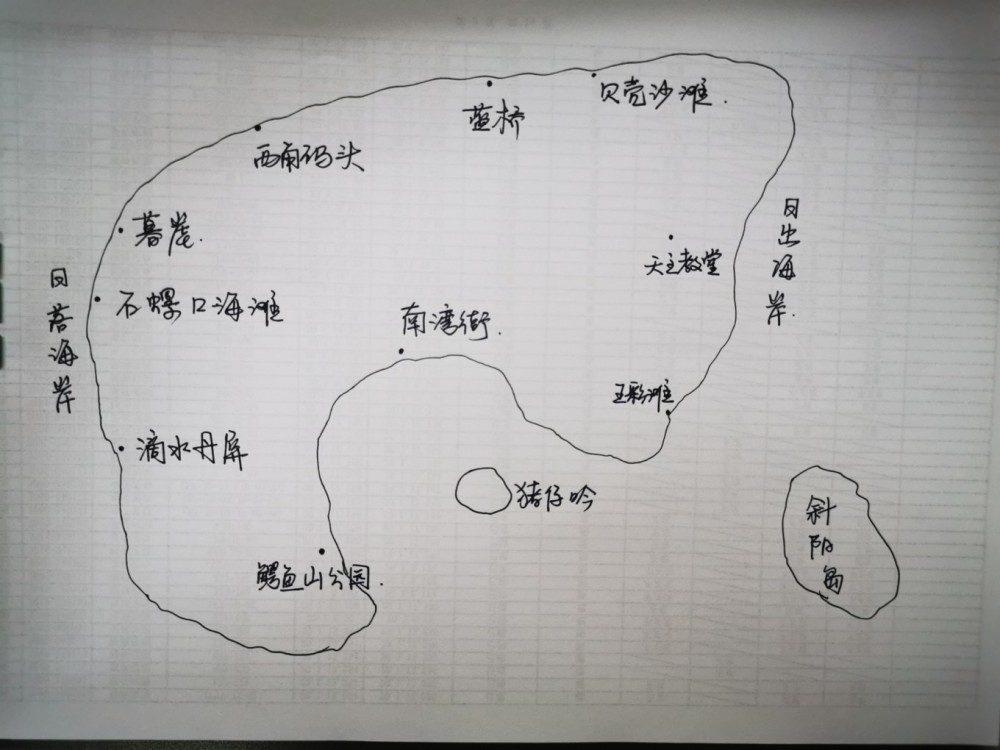 贝壳沙滩.
蓝桥
西角码头
日出海岸.
暮崖.
天主教堂
日落海岸
石螺口海滩
南湾街.
五彩滩
滴水丹屏
猪仔吟
斜阳岛
鳄鱼山公园.